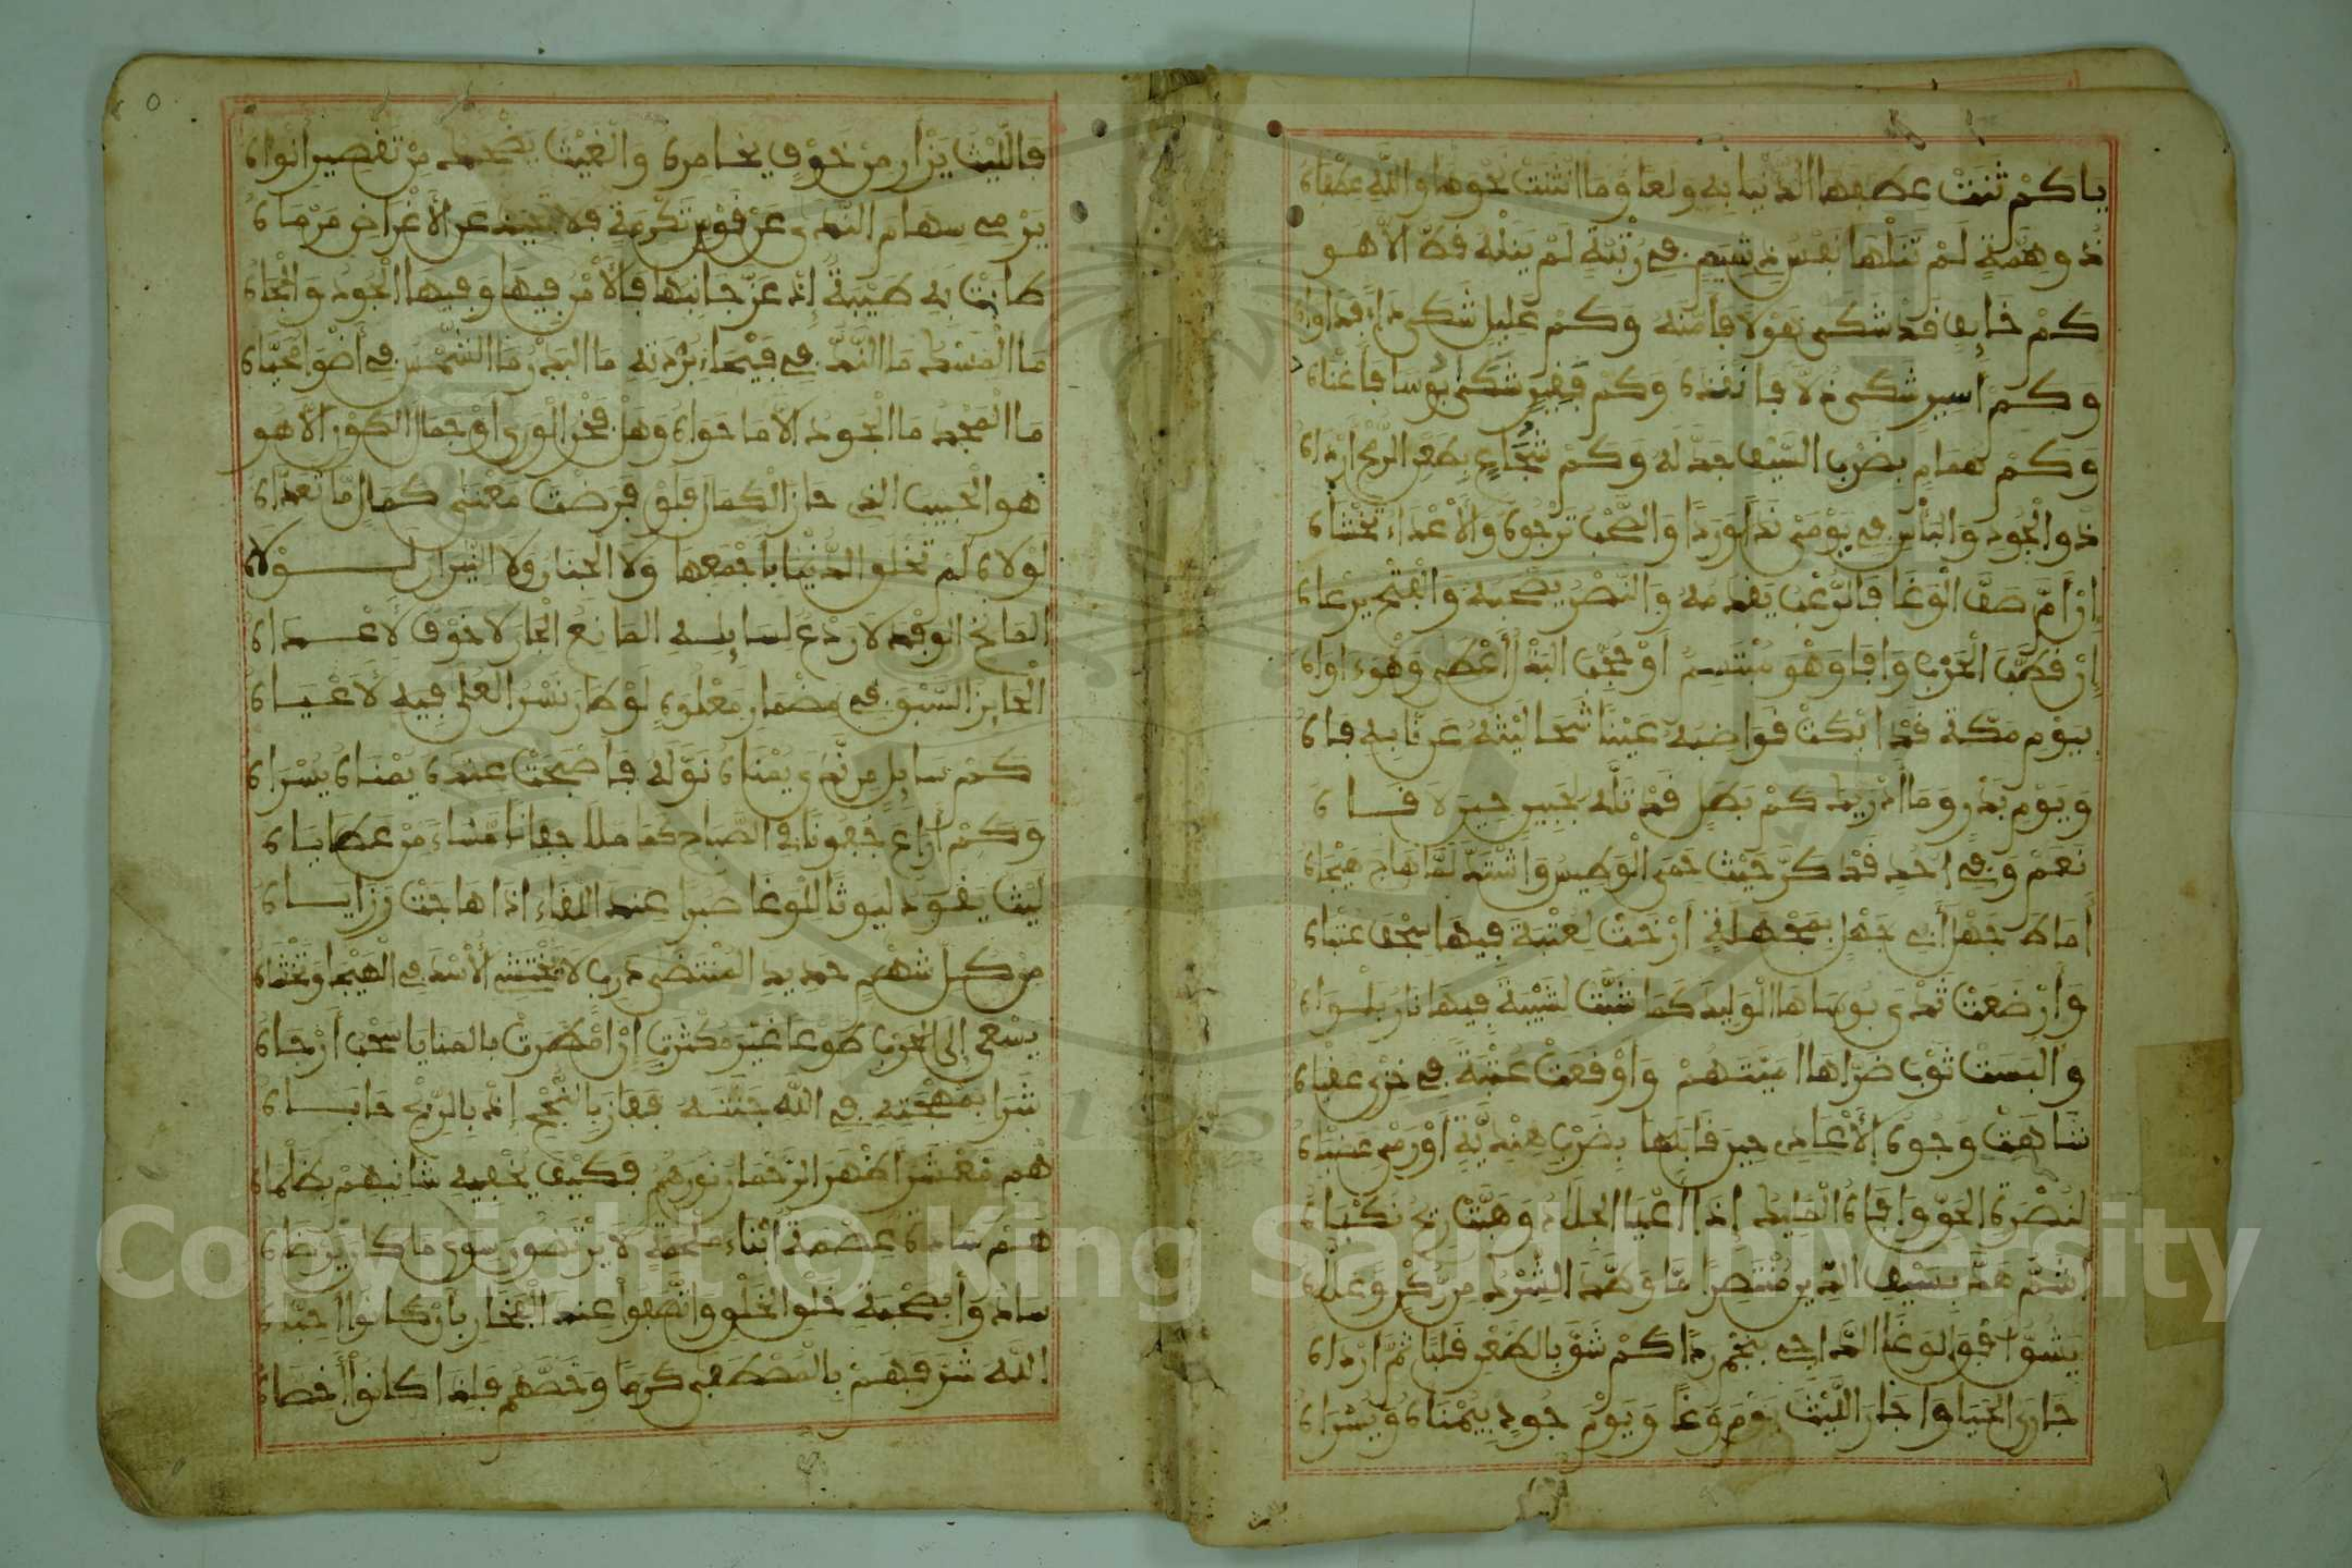 ياكم ثنت عطفها الدنيا به ولعا وما انثنت نحوها والله عطفاه
ذو همة لم تنلها نفس ذي شيم في رتبة لم ينله قط الا هو
كم خايف قد شكى نفولا فامنه وكم عليل شكى داء فداواه
وكم أسير شكى ذلا فانقذه وكم فقير شكى بوسا فاغناه
وكم همام بضرب السيف جدله وكم شجاع بطعن الرمح ارداه
ذو الجود والباس في يومي ندا وردا والصحب ترجوه والأعداء تخشاه
إن أم صف الوغا فالرعب يقدمه والنصر يصحبه والفتح يرعاه
إن قطب الحرب وافا وهو مبتسم او
بيوم مكة قد ابكت قواضبه عينا
ويوم بدر وما أدريك كم بطل قد تله لجبين حين لاقاه
نعم وفي احد قد كر حيث حمى الوطيس واشتد لما هاج هيجاه
أماط جهل أبي جهل بمجهلة أرخت لعتبة فيها سجف عتباه
وأرضعت ثدي بوساها الوليد كما شبت لشيبة فيها نار بلواه
والبست ثوب ضراها اميتهم واوقعت عتبة في خزي عقباه
شاهت وجوه الأعادي حين قابلها بضرب هندية أو رمي
لنصرة الحق وافاه الملايك إذا أعيا الجلاد وهبت ريح نكباه
أشم هد بسيف الدين منتصرا ما وطد الشرك من ركن وعلاه
يشق أفق الوغا الداجي بنجم ردا كم شق بالطعن قلبا ثم ارداه
جارى الحيا وا جار الليث يوم وغا ويوم جود بيمناه ويسراه
فالليث يزأر من خوف يخامره والغيث يضحك من تقصير انواه
يرمي سهام الندى عن قوس تكرمة فلا تحيد عن الأغراض مرماه
طابت به طيبة إذ عز جانبها فالأمر فيها وفيها الجود والجاه
ما المسك ما الند في فيحاء بردته ما البدر ما الشمس في أضواء محياه
ما المجد ما الجود الا ما حواه وهل فخر الورى او جمال الكون الا هو
هو الحبيب الذي حاز الكمال فلو فرضت معنى كمال ما تعداه
لولاه لم تخلق الدنيا باجمعها ولا الجنان ولا النيران لولاه
المانح الوفد لا ردع لسايله المانع الجار لا خوف لأعداه
الحايز السبق في مضمار معلوة لو طار نسر العلى فيه لأعياه
كم سايل من ندى يمناه نوله فاضحت عنده يمناه يسراه
وكم أراع جفونا في الصباح كما ملا جفانا مساء من عطاياه
ليث يقود ليوثا للوغا صبرا عند اللقاء اذا هاجت رزاياه
من كل شهم حديد المنتضى درب لا تختشي الأسد في الهيجا وتخشاه
يسعى إلى الحرب طوعا غير مكترث إن امطرت بالمنايا سحب أرجاه
شرا بمهجته في الله جنته ففاز بالنجح إذ بالربح حاباه
هم معشر اظهر الرحمان نورهم فكيف يخفيه شانيهم بظلماه
هم ساده عصمة أبناء ملحمة لا يرتضون سوى ما كان يرضاه
سادوا بصحبة خلق الخلق واتصفوا عند الفخار بأن كانوا احباه
الله شرفهم بالمصطفى كرما وخصهم فلذا كانوا أخصاه